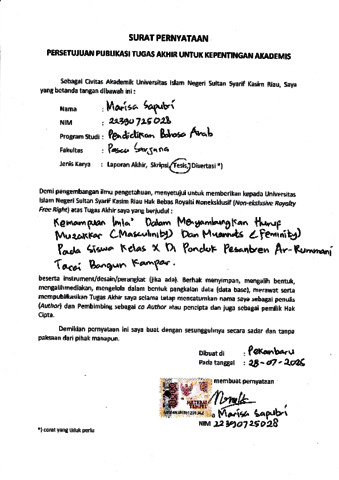 SURAT PERNYATAAN
PERSETUJUAN PUBLIKASI TUGAS AKHIR UNTUK KEPENTINGAN AKADEMIS
Sebagai Civitas Akademik Universitas Islam Negeri Sultan Syarif Kasim Riau, Saya
yang botanda tangan dibawah ini :
Nama : Marisa Saputri
NIM : 22390725028
Program Studi : Pendidikan Bahasa Arab
Fakultas : Pasca Sarjana
Jenis Karya : Laporan Akhir, Skripsi, Tesis, Disertasi *)
Demi pengembangan ilmu pengetahuan, menyetujui untuk memberikan kepada Universitas
Islam Negeri Sultan Syarif Kasim Riau Hak Bebas Royalsi Noneksklusif (Non-eksclusive Royalty
Free Right) atas Tugas Akhir saya yang berjudul :
Kemampuan Imla' Dalam Menyambungkan Huruf
Muzakkar (Masculinity) Dan Muannats (Feminity)
Pada Siswa Kelas X Di Pondok Pesantren Ar-Rummani
Tarai Bangun Kampar.
beserta instrument/desain/perangkat (jika ada). Berhak menyimpan, mengalih bentuk,
mengalihmediakan, mengelola dalam bentuk pangkalan data (data base), merawat serta
mempublikasikan Tugas Akhir saya selama tetap mencatumkan nama saya sebagai penulis
(Author) dan Pembimbing sebagai co Author atau pencipta dan juga sebagai pemilik Hak
Cipta.
Demikian pernyataan ini saya buat dengan sesungguhnya secara sadar dan tanpa
paksaan dari pihak manapun.
Dibuat di : Pekanbaru
Pada tanggal : 28-07-2025
membuat pernyataan
METERAI
TEMPEL
Marisa Saputri
NIM 22390725028
*) coret yang tidak perlu